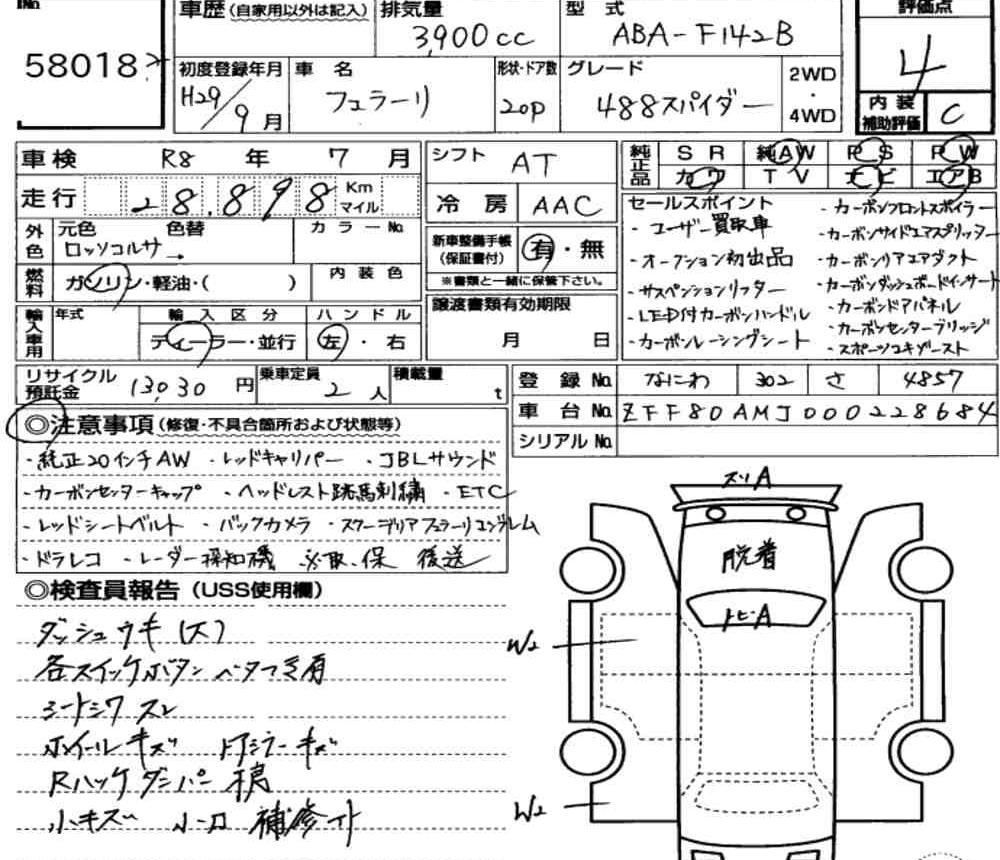 No.
58018
車歴 (自家用以外は記入)
排気量
3,900cc
型 式
ABA-F142B
評価点
4
初度登録年月
H29/9月
車 名
フェラーリ
形状・ドア数
2OP
グレード
488スパイダー
2WD
・
4WD
内装
補助評価
C
車検 R8 年 7 月
走行 28,898 Km
マイル
シフト AT
冷 房 AAC
純正品
SR 純AW PS PW
カワ TV ナビ エアB
外色
元色 色替
ロッソコルサ →
カラーNo.
内装色
燃料
ガソリン・軽油・( )
新車整備手帳
(保証書付)
有・無
※書類と一緒に保管下さい。
輸入車用
年式
輸入区分
ディーラー・並行
ハンドル
左・右
譲渡書類有効期限
月 日
セールスポイント
・ユーザー買取車
・オークション初出品
・サスペンションリフター
・LED付カーボンハンドル
・カーボンレーシングシート
・カーボンフロントスポイラー
・カーボンサイドエアスプリッター
・カーボンリアエアダクト
・カーボンダッシュボードインサート
・カーボンドアパネル
・カーボンセンターブリッジ
・スポーツエキゾースト
リサイクル
預託金
13030 円
乗車定員
2人
積載量
t
登録No. なにわ 302 さ 4857
車台No. ZFF80AMJ000228684
シリアルNo.
◎注意事項(修復・不具合箇所および状態等)
・純正20インチAW ・レッドキャリパー ・JBLサウンド
・カーボンセンターキャップ ・ヘッドレスト跳馬刺繍 ・ETC
・レッドシートベルト ・バックカメラ ・スクーデリアフェラーリエンブレム
・ドラレコ ・レーダー探知機 ※取、保 後送
◎検査員報告(USS使用欄)
ダッシュウキ(大)
各スイッチボタン ベタつき有
シートシワ スレ
ホイールキズ ドアミラーキズ
Rハッチダンパー
小キズ 小凹 補修
スリA
脱着
トビA
W2
W2